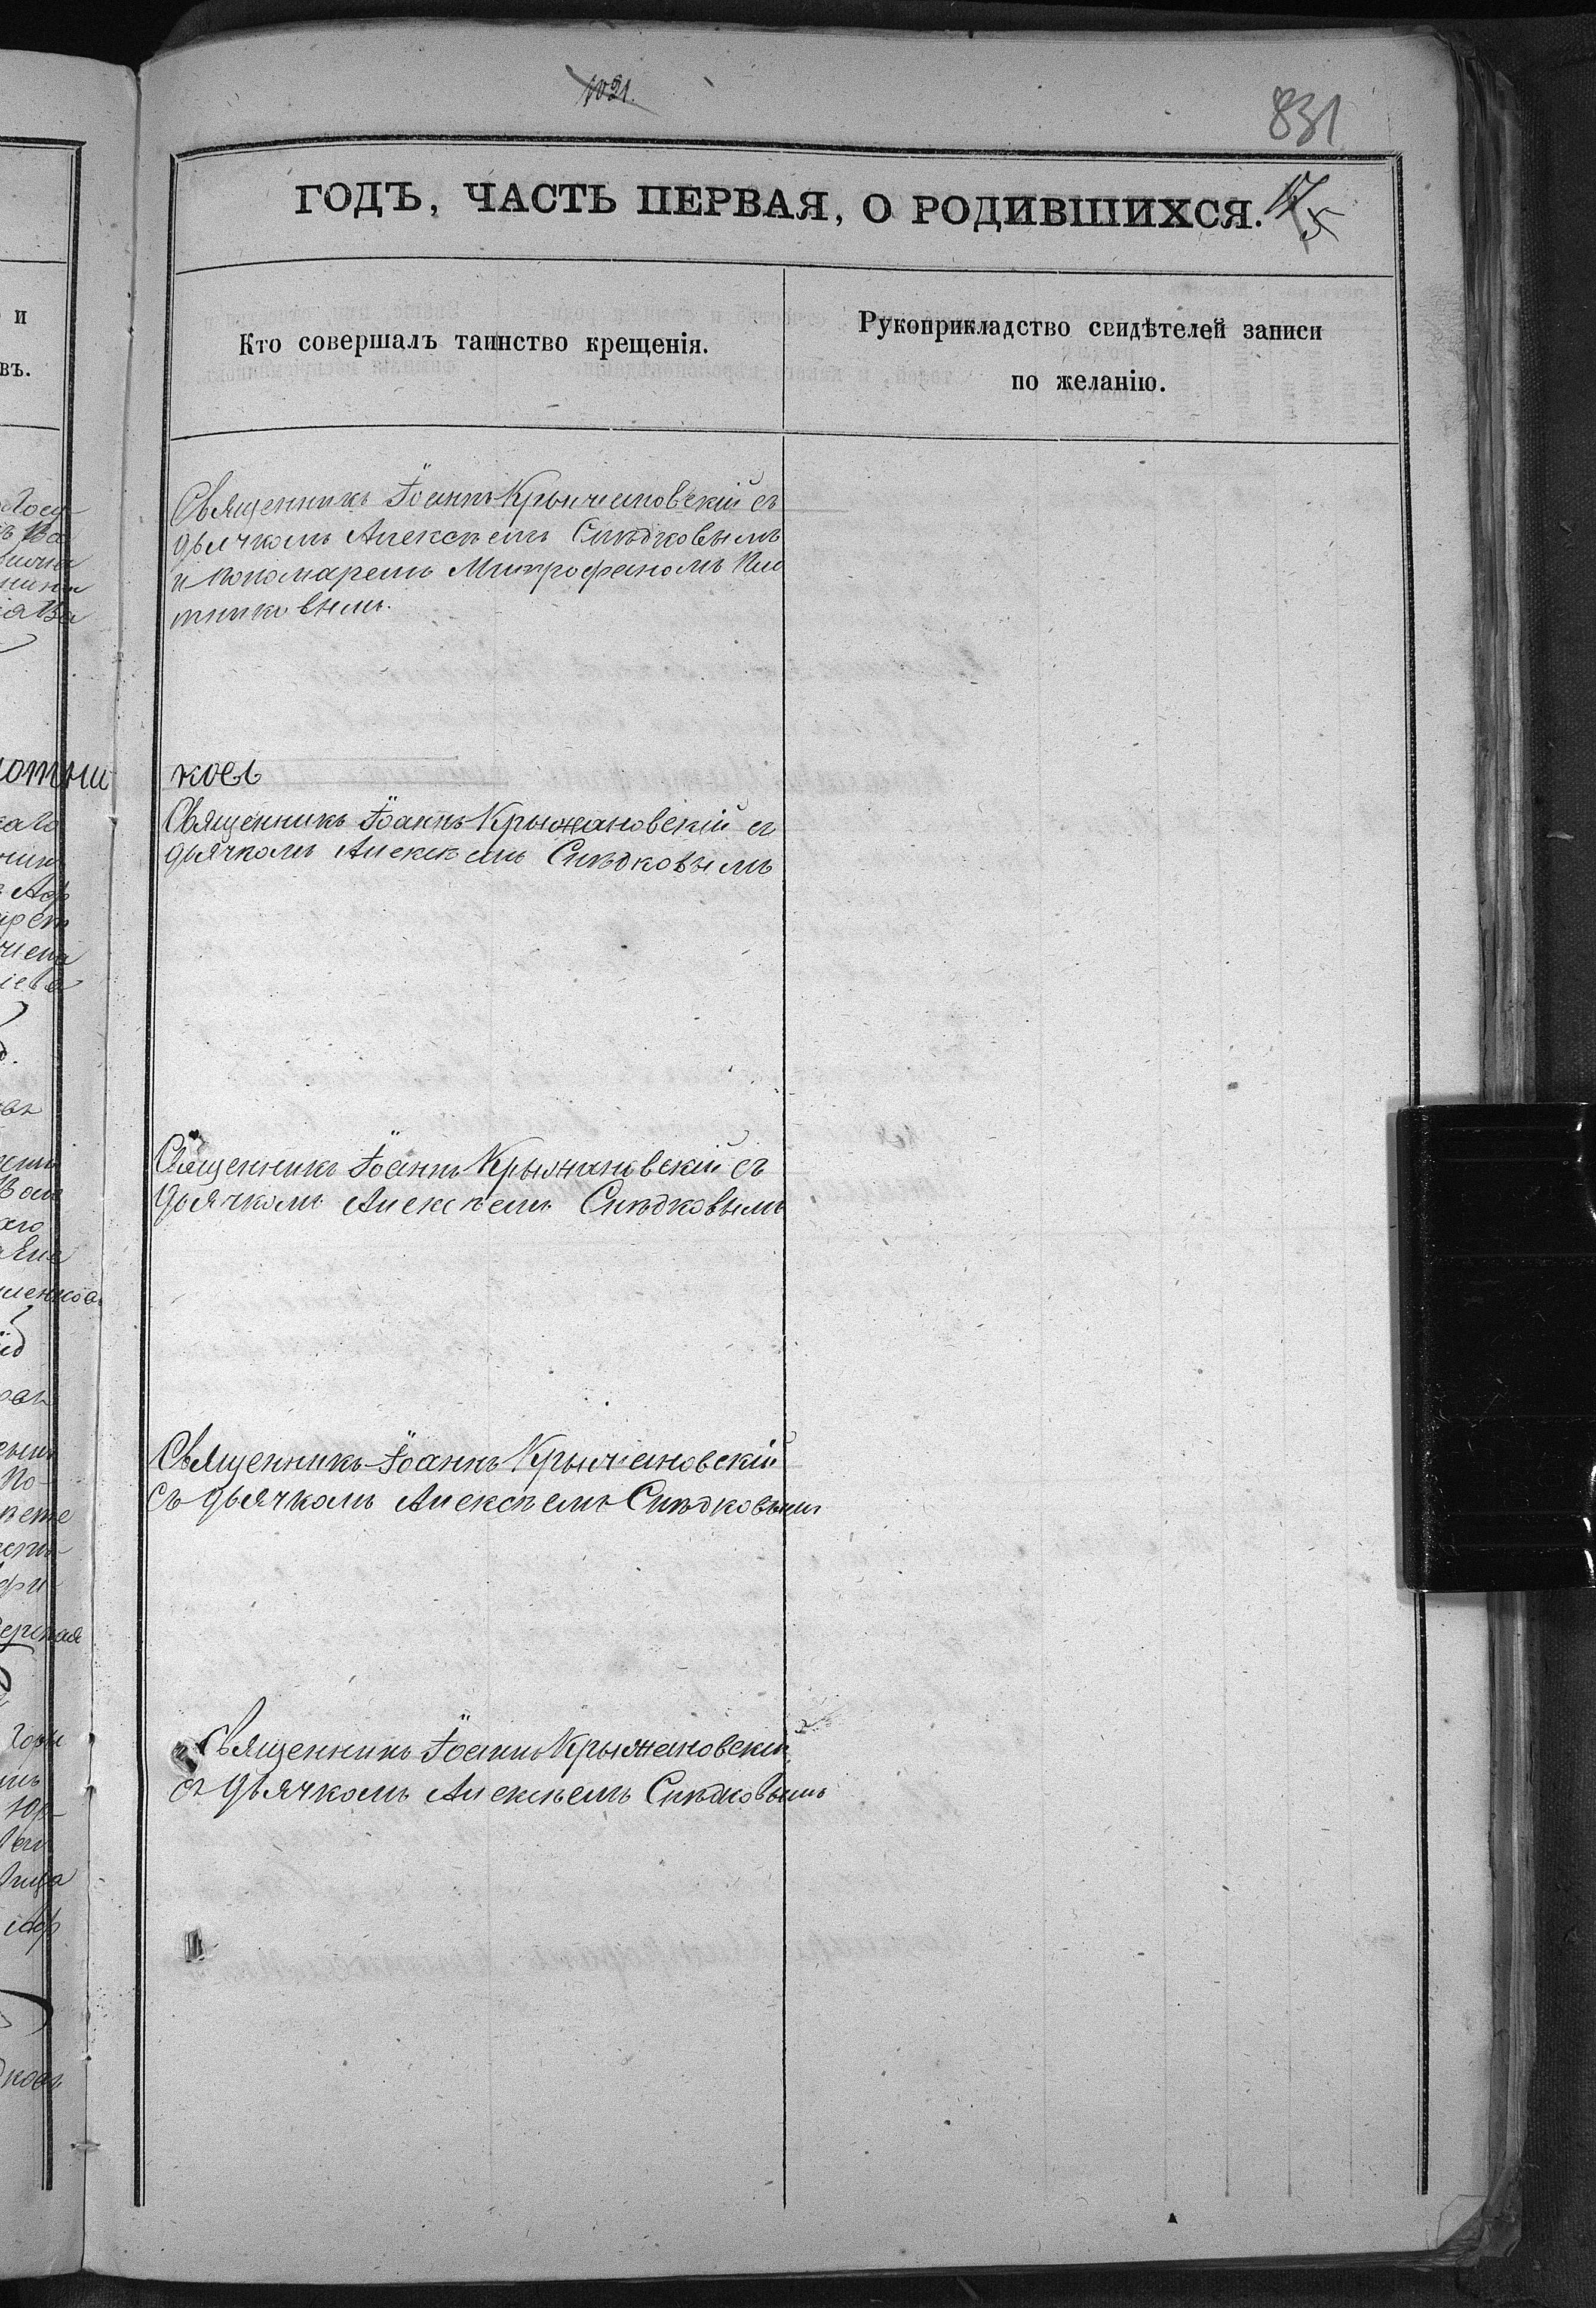 1021.
831
ГОДЪ, ЧАСТЬ ПЕРВАЯ, О РОДИВШИХСЯ.
Кто совершалъ таинство крещенія.
Рукоприкладство свидѣтелей записи
по желанію.
Священникъ Іоаннъ Крыжановскій съ
дьячкомъ Алексѣемъ Слѣдковымъ
и пономаремъ Митрофаномъ Пло
тниковымъ.
ковъ
Священникъ Іоаннъ Крыжановскій съ
дьячкомъ Алексѣемъ Слѣдковымъ
Священникъ Іоаннъ Крыжановскій съ
дьячкомъ Алексѣемъ Слѣдковымъ
Священникъ Іоаннъ Крыжановскій
съ дьячкомъ Алексѣемъ Слѣдковымъ
Священникъ Іоаннъ Крыжановскій
съ дьячкомъ Алексѣемъ Слѣдковымъ